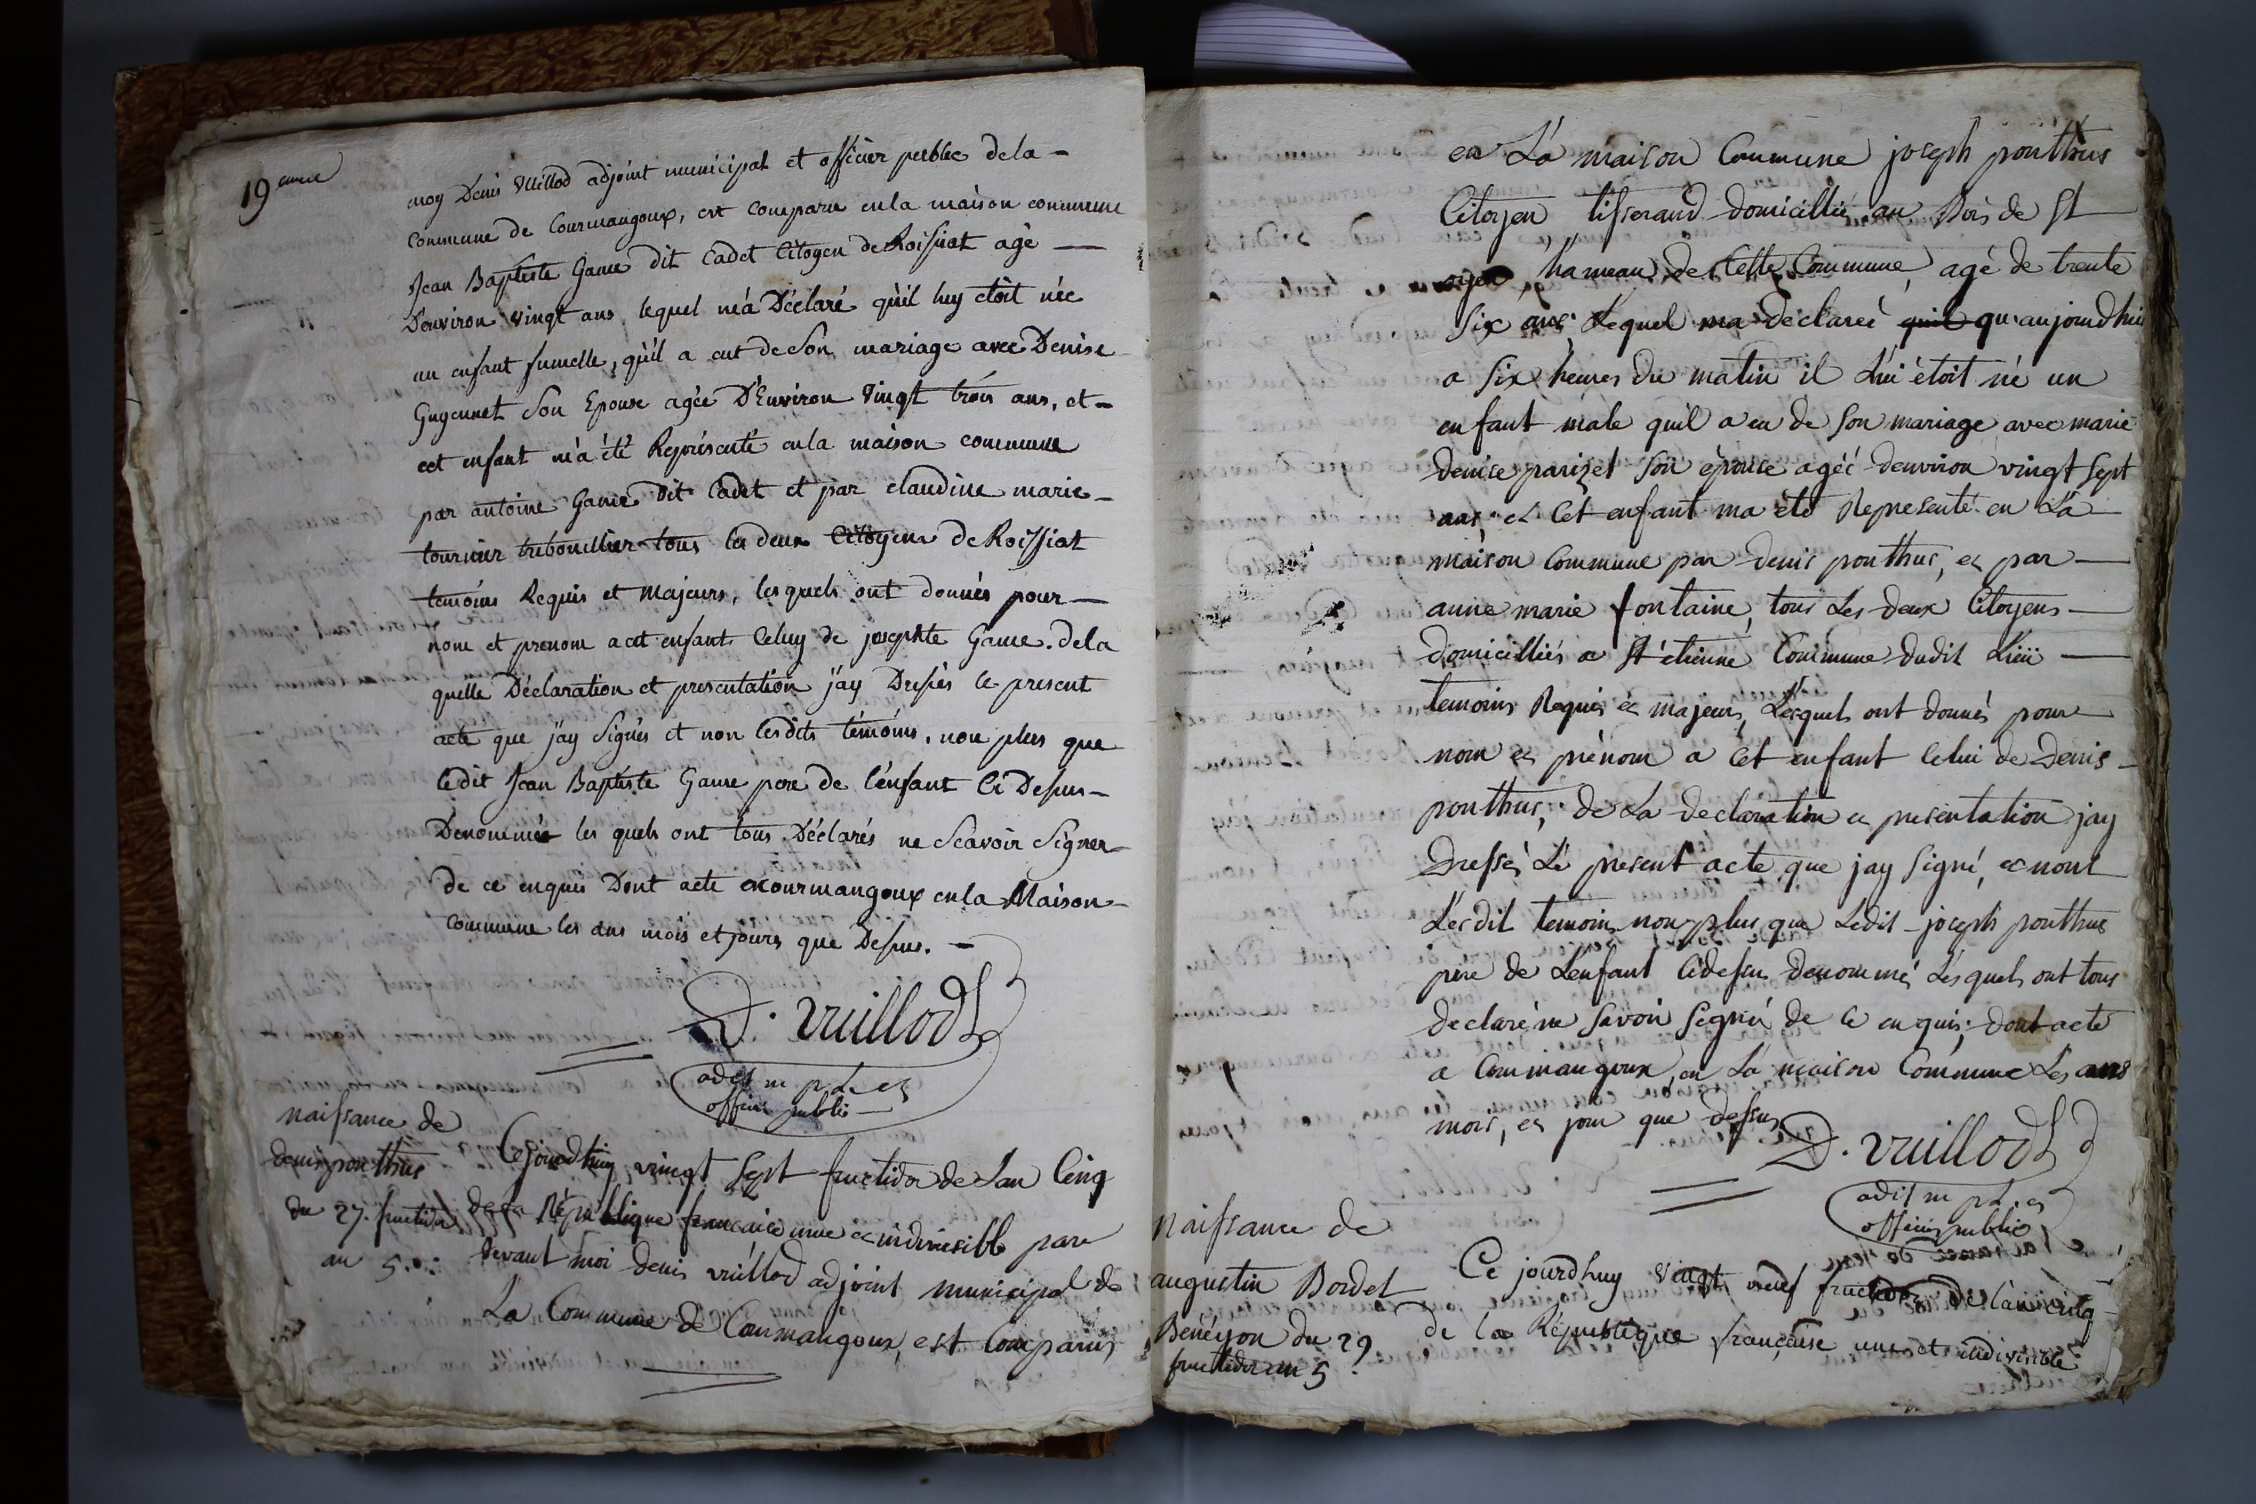 19 eme
moy Denis Vuillod adjoint municipal et officier public de la -
commune de Courmangoux, est comparu en la maison commune
Jean Baptiste Game dit Cadet Citoyen de Roissiat agé -
D'environ vingt ans lequel m'a Déclaré qu'il luy étoit née
un enfant fumelle, qu'il a eut de son mariage avec Denise
Guyennet Son Epouse agée D'Environ Vingt trois ans, et -
cet enfant m'a été Représenté en la maison commune
par antoine Game dit Cadet et par claudine marie -
tournier tribouillier tous les deux Citoyens de Roissiat
temoins Requis et Majeurs, lesquels ont donnés pour -
nom et prenom a cet enfant Celuy de josephte Game. de la
quelle Déclaration et presentation j'ay Dressés le present
acte que j'ay Signés et non lesdits témoins, non plus que
ledit Jean Baptiste Game pere de l'enfant Ci Dessus -
Denommée les quels ont tous Déclarés ne Scavoir Signer -
de ce enquis Dont acte a courmangoux en la Maison -
commune les ans mois et jours que Dessus. -
D. Vuillod
adjt m p L et
officier public
naissance de
denis ponthus
du 27. fructidor
an 5.
Cejourdhuy vingt Sept fructidor de Lan Cinq
de la République francaise une et indivisible par
devant moi denis vuillod adjoint municipal de
La Commune de Courmangoux, est Comparus
en La maison Commune joseph ponthus
Citoyen, tisserand domicillié au Bois de St
oyen, hameau de Cette Commune, agé de trente
Six ans, Lequel ma declareé quil qu'aujourdhui
a Six heures du matin il Lui étoit né un
enfant mâle quil a eu de Son mariage avec marie
denise parizel Son épouse ageé denviron vingt Sept
ans, et Cet enfant ma été Representé en La
maison Commune par denis ponthus, et par -
anne marie fontaine, tous Les deux Citoyens -
domicilliés a St etienne Commune dudit Lieu -
temoins Requis et majeurs, Lesquels ont donnés pour
nom et prénom a Cet enfant Celui de Denis -
ponthus, de La declaration et presentation jay
Dressés Le present acte que jay Signé, et nont
Lesdit temoins non plus que Ledit joseph ponthus
pere de Lenfant Cidessus denommé Lesquels ont tous
declaré ne Savoir Signér de Ce enquis; dont acte
a Courmangoux, en La maison Commune Les ans
mois, et jour que dessus
D. Vuillod
adjt m p L et
officier public
naissance de
augustin Bordet
Benéyon du 29
fructidor an 5
Ce jourdhuy vingt neuf fructidor de l'an cinq -
de la République française une et indivisible